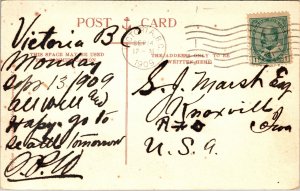 POST CARD
THIS SPACE MAY BE USED
THE ADDRESS ONLY TO BE
WRITTEN HERE
Victoria BC
Monday
Sep 13/909
all well and
Happy. go to
Seattle tomorrow
S. J. Marsh Esq
Knoxville
R 2
Iowa
U. S. A